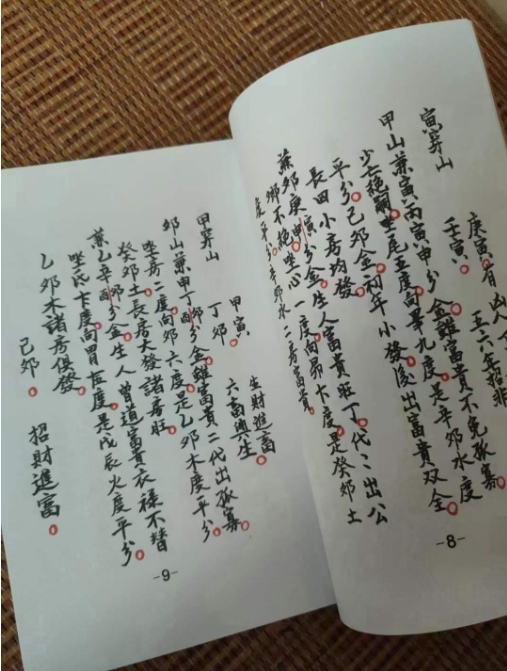 寅穿山
庚寅 有凶人丁
壬寅 五六年招非
甲山兼寅丙寅申分金雖富貴不免孤寡
少亡絕嗣坐尾五度向畢九度是辛卯水度
平分己卯金初年小發後出富貴双全
長田小房均發
兼卯庚寅申分金生人富貴旺丁代〻出公
卿不絕坐心一度向昴卞度是癸卯土
度平分辛卯水二房富貴
-8-
甲穿山
甲寅 生財進富
丁卯 六畜興生
卯山兼甲丁卯酉分金雖富貴二代出孤寡
坐房二度向卯六度是乙卯木度平分
癸卯土長房大發諸房旺
兼乙辛卯酉分金生人曾道富貴衣祿不替
坐氐卞度向胃度是戊辰火度平分
乙卯木諸房俱發
己卯 招財進富
-9-